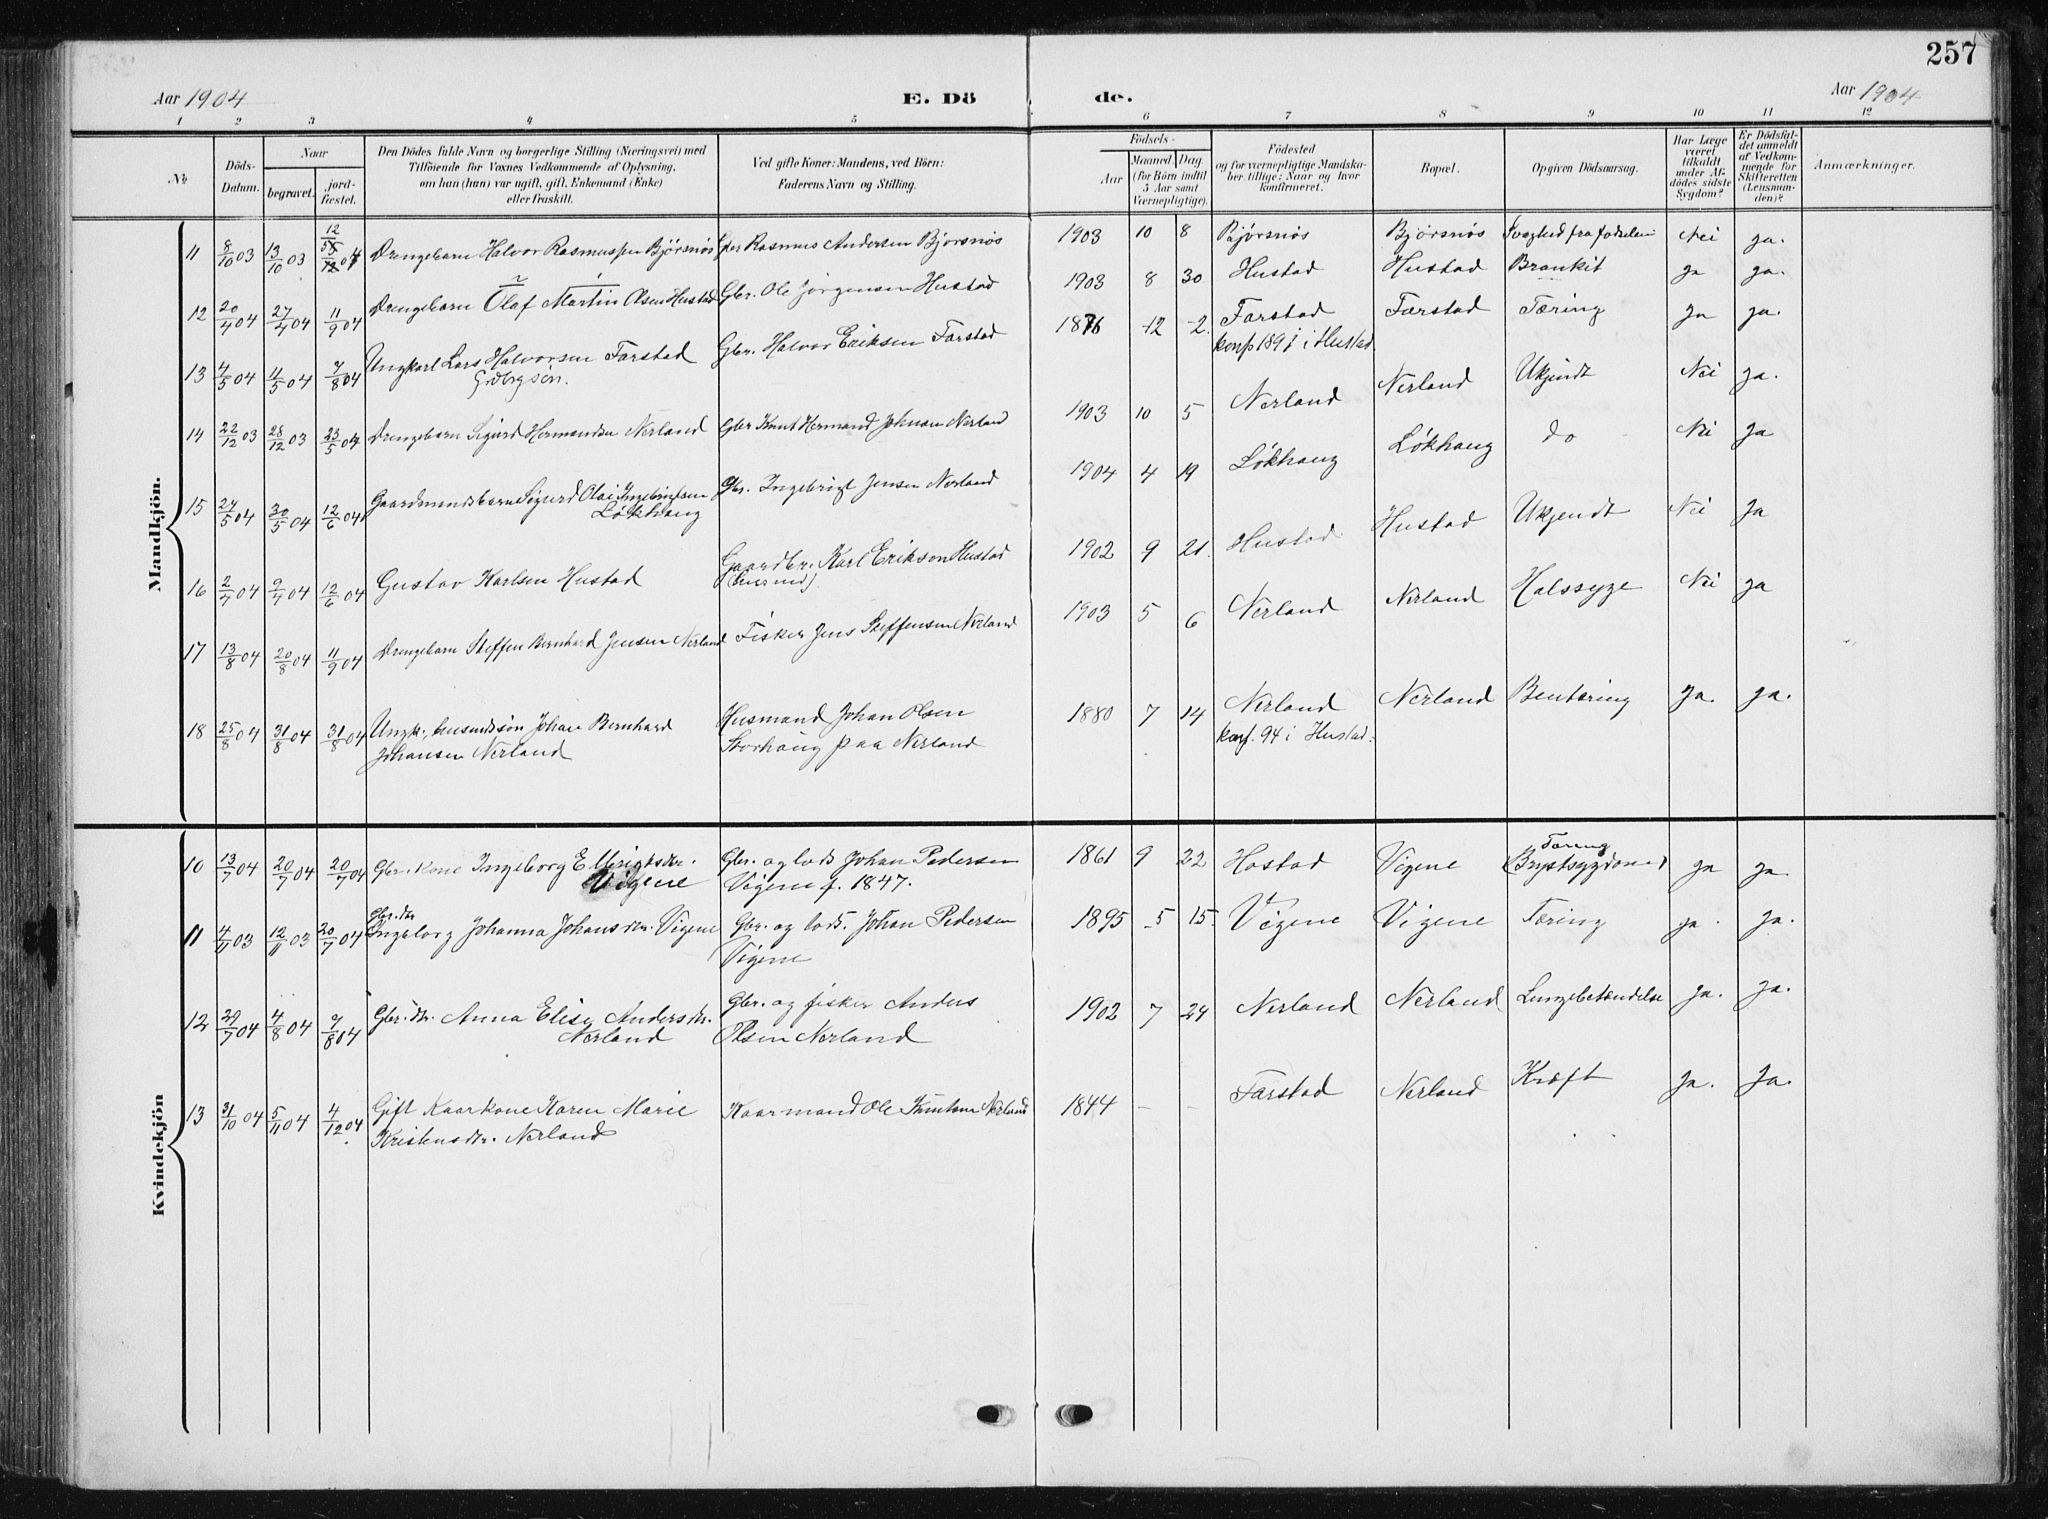 257
Aar 1904 E. Dö de. Aar 1904
1 2 3 4 5 6 7 8 9 10 11 12
No
Döds-Datum.
Naar
begravet.
jord-fæstet.
Den Dödes fulde Navn og borgerlige Stilling (Næringsvei) med
Tilföiende for Voxnes Vedkommende af Oplysning,
om han (hun) var ugift, gift, Enkemand (Enke)
eller fraskilt.
Ved gifte Koner: Mandens, ved Börn:
Faderens Navn og Stilling.
Födsels-
Aar
Maaned. Dag.
(for Börn indtil
5 Aar samt
Værnepligtige).
Födested
og for værnepligtige Mandska-
ber tillige: Naar og hvor
konfirmeret.
Bopæl.
Opgiven Dödsaarsag.
Har Læge
været
tilkaldt
under Af-
dödes sidste
Sygdom?
Er Dödsfal-
det anmeldt
af Vedkom-
mende for
Skifteretten
(Lensman-
den)?
Anmærkninger.
Mandkjön.
11 8/10 03 13/10 03 Drengebarn Halvor Rasmussen Bjørsnøs Gbr Rasmus Andersen Bjørsnøs 1903 10 8 Bjørsnøs Bjørsnøs Svaghed fra fødselen Nei ja.
12 20/4 04 27/4 04 11/9 04 Drengebarn Olaf Martin Olsen Hustad Gbr. Ole Jørgensen Hustad 1903 8 30 Hustad Hustad Bronkit ja ja.
13 4/5 04 11/5 04 7/8 04 Ungkarl Lars Halvorsen Farstad Gbr. Halvor Eriksen Farstad 1876 12 2. Farstad Farstad Tæring ja ja.
Grdbrgsøn. konf 1891 i Hustad
14 22/12 03 28/12 03 23/5 04 Drengebarn Sigurd Hermandsen Nerland Gbr Knut Hermand Johnsen Nerland 1903 10 5 Nerland Nerland Ukjendt Nei ja.
15 24/5 04 30/5 04 12/6 04 Gaardmandsbarn Sigurd Olai Ingebrigtsen Gbr. Ingebrigt Jensen Nerland 1904 4 19 Løkhaug Løkhaug do Nei ja
Løkhaug
16 2/7 04 9/7 04 12/6 04 Gustav Karlsen Hustad Gaardbr. Karl Erikson Hustad 1902 9 21. Hustad Hustad Ukjendt Nei ja
17 13/8 04 20/8 04 11/9 04 Drengebarn Steffen Bernhard Jensen Nerland Fisker Jens Steffensen Nerland 1903 5 6 Nerland Nerland Halssyge Nei ja
18 25/8 04 31/8 04 31/8 04 Ungk., husmdssøn Johan Bernhard Husmand Johan Olsen 1880 7 14 Nerland Nerland Bentæring ja. ja.
Johansen Nerland Storhaug paa Nerland konf. 94 i Hustad.
Kvindekjön
10 13/7 04 20/7 04 20/7 04 Gbr. kone Ingeborg Ellingsdtr. Gbr. og lods Johan Pedersen 1861 9 22 Hostad Vigene Tæring (Brystsygdomme) ja ja.
Vigene Vigene f. 1847.
Gbr. dtr
11 4/11 03 12/11 03 20/7 04 Ingeborg Johanna Johansdtr. Vigene Gbr. og lods. Johan Pedersen 1895 5 15. Vigene Vigene Tæring ja. ja.
Vigene
12 29/7 04 4/8 04 7/8 04 Gbr. dtr. Anna Elise Andersdtr. Gbr. og fisker Anders 1902 7 24 Nerland Nerland Lungebetændelse ja. ja.
Nerland Olsen Nerland
13 31/10 04 5/11 04 4/12 04 Gift Kaarkone Karen Marie Kaarmand Ole Knutsen Nerland 1844 - - Farstad Nerland Kræft ja. ja.
Kristensdtr. Nerland